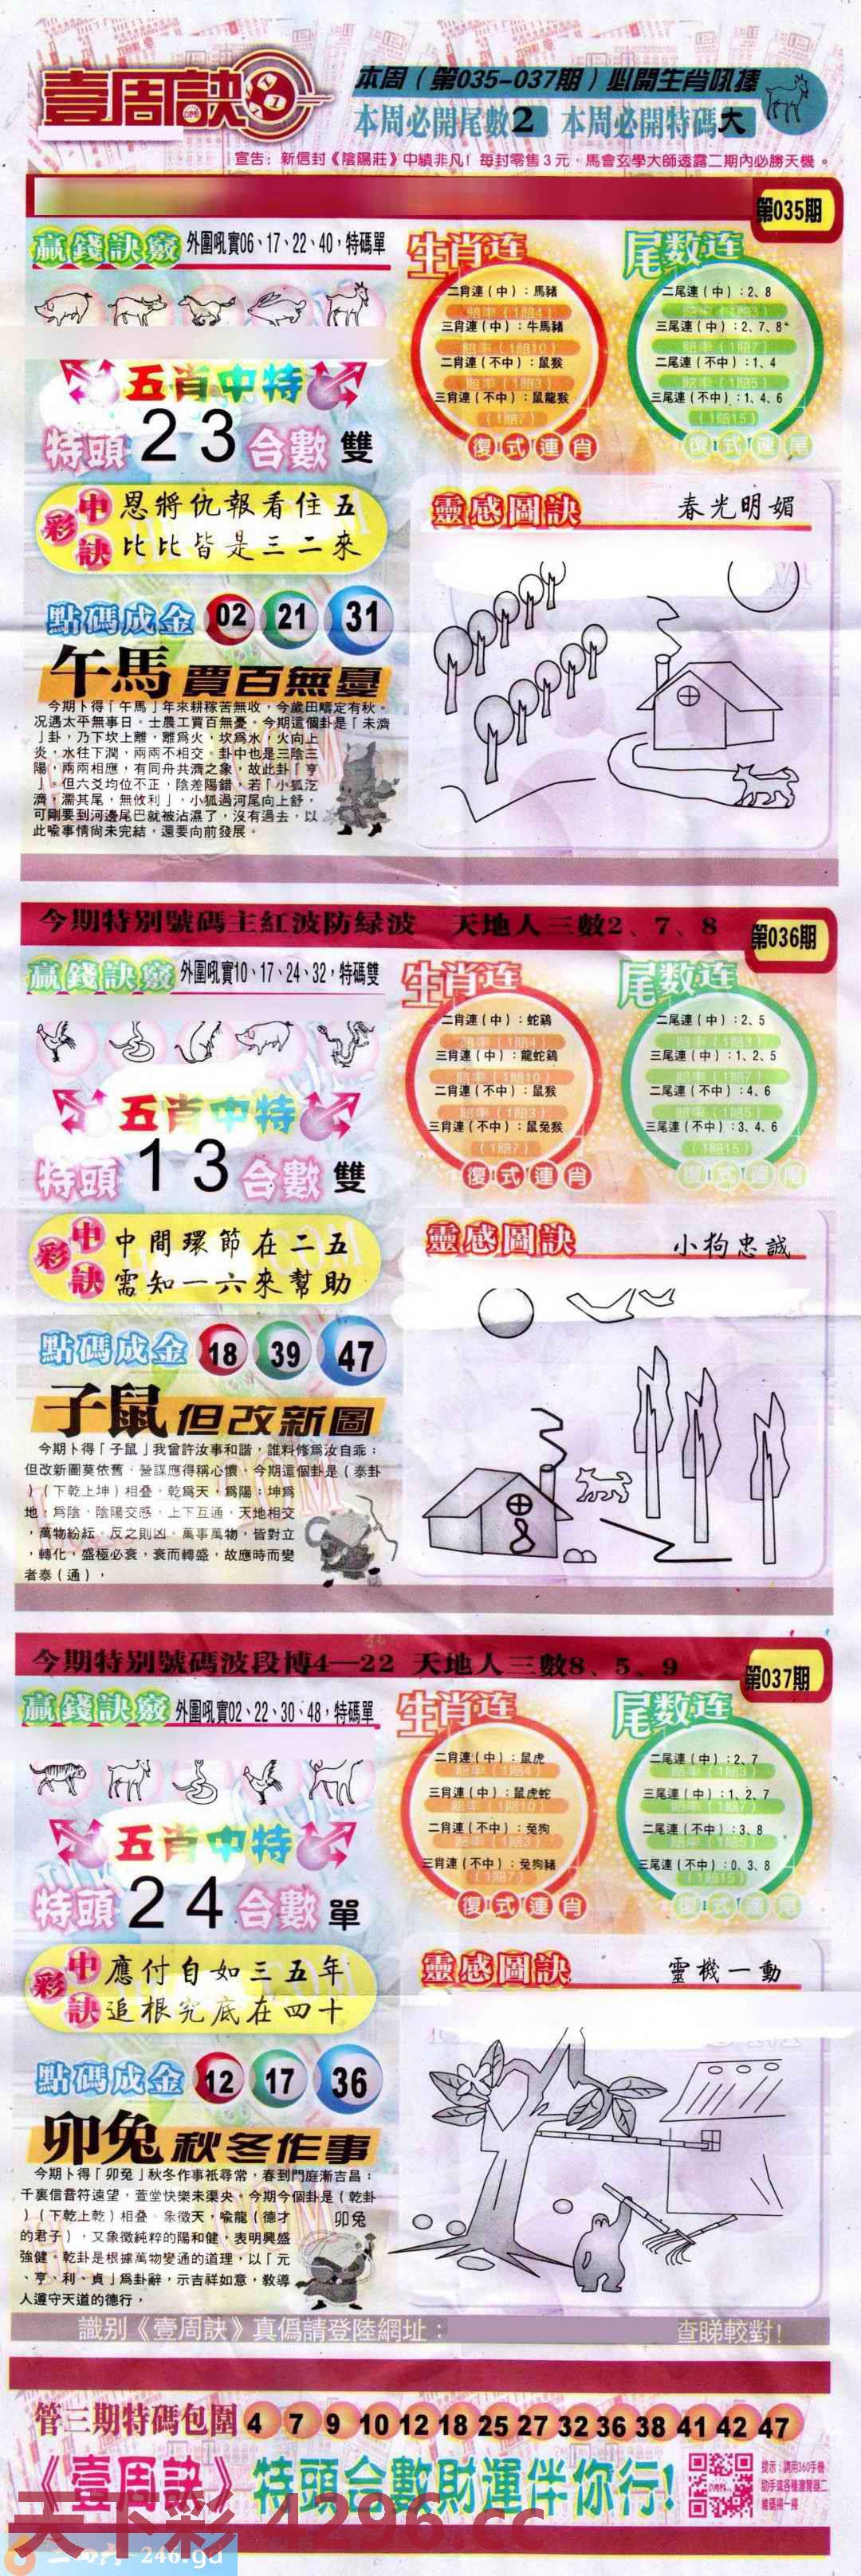 壹周訣
本周（第035-037期）必開生肖吼揰
本周必開尾數2 本周必開特碼大
宣告：新信封《陰陽莊》中績非凡！每封零售3元，馬會玄學大師透露二期內必勝天機。
第035期
贏錢訣竅 外圍吼實06、17、22、40，特碼單
五肖中特
特頭 2 3 合數 雙
中彩訣
恩將仇報看住五
比比皆是三二來
點碼成金 02 21 31
午馬 賈百無憂
今期卜得「午馬」年來耕稼苦無收，今歲田疇定有秋。
况遇太平無事日。士農工賈百無憂。今期這個卦是「未濟
」卦，乃下坎上離，離爲火，坎爲水，火向上
炎，水往下潤，兩兩不相交。卦中也是三陰三
陽，兩兩相應，有同舟共濟之象，故此卦「亨
」。但六爻均位不正，陰差陽錯，若「小狐汔
濟，濡其尾，無攸利」，小狐過河尾向上舒，
可剛要到河邊尾巴就被沾濕了，沒有過去，以
此喻事情尚未完結，還要向前發展。
生肖连
二肖連（中）：馬豬
賠率（1賠4）
三肖連（中）：牛馬豬
賠率（1賠10）
二肖連（不中）：鼠猴
賠率（1賠3）
三肖連（不中）：鼠龍猴
（1賠7）
復式連肖
尾数连
二尾連（中）：2、8
賠率（1賠3）
三尾連（中）：2、7、8
賠率（1賠7）
二尾連（不中）：1、4
賠率（1賠5）
三尾連（不中）：1、4、6
（1賠15）
復式連尾
靈感圖訣 春光明媚
今期特别號碼主紅波防緑波 天地人三數2、7、8
第036期
贏錢訣竅 外圍吼實10、17、24、32，特碼雙
五肖中特
特頭 1 3 合數 雙
中彩訣
中間環節在二五
需知一六來幫助
點碼成金 18 39 47
子鼠 但改新圖
今期卜得「子鼠」我曾許汝事和諧，誰料修爲汝自乖；
但改新圖莫依舊，營謀應得稱心懷。今期這個卦是（泰卦
）（下乾上坤）相叠。乾爲天，爲陽；坤爲
地，爲陰，陰陽交感，上下互通，天地相交
，萬物紛紜。反之則凶。萬事萬物，皆對立
，轉化，盛極必衰，衰而轉盛，故應時而變
者泰（通），
生肖连
二肖連（中）：蛇鷄
賠率（1賠4）
三肖連（中）：龍蛇鷄
賠率（1賠10）
二肖連（不中）：鼠猴
賠率（1賠3）
三肖連（不中）：鼠兔猴
（1賠7）
復式連肖
尾数连
二尾連（中）：2、5
賠率（1賠3）
三尾連（中）：1、2、5
賠率（1賠7）
二尾連（不中）：4、6
賠率（1賠5）
三尾連（不中）：3、4、6
（1賠15）
復式連尾
靈感圖訣 小狗忠誠
今期特别號碼波段博4—22 天地人三數8、5、9
第037期
贏錢訣竅 外圍吼實02、22、30、48，特碼單
五肖中特
特頭 2 4 合數 單
中彩訣
應付自如三五年
追根究底在四十
點碼成金 12 17 36
卯兔 秋冬作事
今期卜得「卯兔」秋冬作事衹尋常，春到門庭漸吉昌；
千裏信音符遠望，萱堂快樂未渠央。今期今個卦是（乾卦
）（下乾上乾）相叠。象徵天，喻龍（德才
的君子），又象徵純粹的陽和健，表明興盛
強健。乾卦是根據萬物變通的道理，以「元
、亨、利、貞」爲卦辭，示吉祥如意，教導
人遵守天道的德行，
卯兔
生肖连
二肖連（中）：鼠虎
賠率（1賠4）
三肖連（中）：鼠虎蛇
賠率（1賠10）
二肖連（不中）：兔狗
賠率（1賠3）
三肖連（不中）：兔狗豬
（1賠7）
復式連肖
尾数连
二尾連（中）：2、7
賠率（1賠3）
三尾連（中）：1、2、7
賠率（1賠7）
二尾連（不中）：3、8
賠率（1賠5）
三尾連（不中）：0、3、8
（1賠15）
復式連尾
靈感圖訣 靈機一動
識别《壹周訣》真僞請登陸網址： 查睇較對！
管三期特碼包圍 4 7 9 10 12 18 25 27 32 36 38 41 42 47
《壹周訣》特頭合數財運伴你行！
提示：請用360手機
助手或各種瀏覽器二
維碼掃一掃
天下彩 4296.cc
246.gd